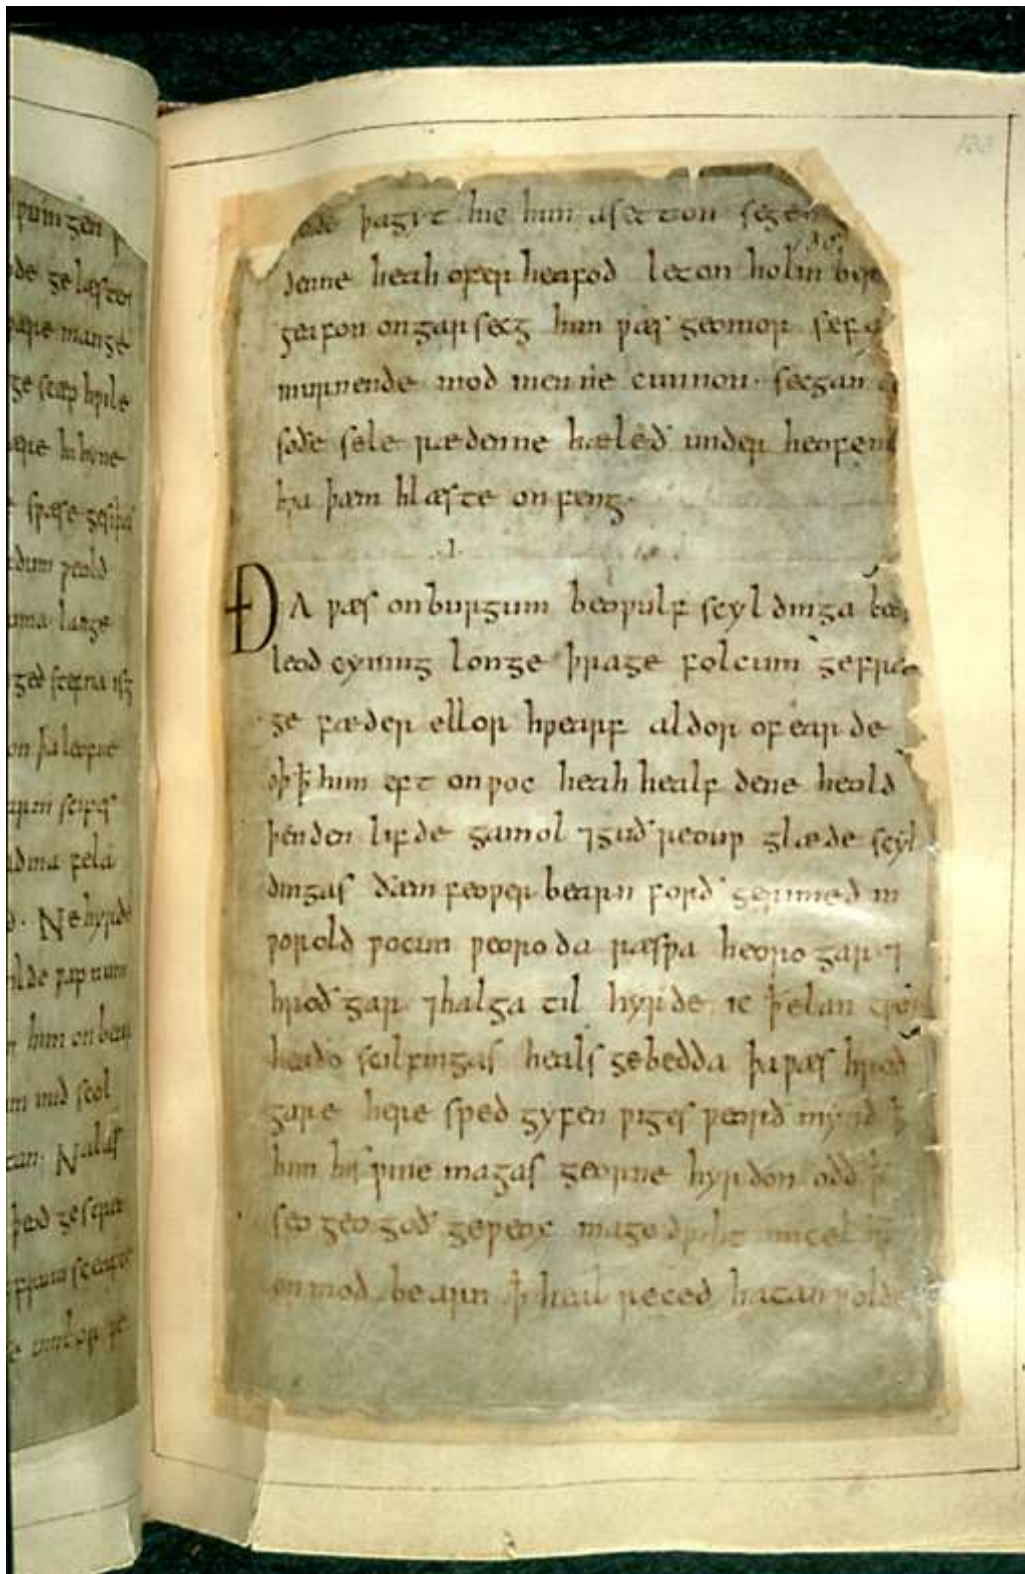 ƿunigen
de ge læsten
ƿære man ge
ge scæp hƿile
ære hi hyne
sƿæse gesiþas
dum ƿeold
uma lange
ged stefna isig
on þa leofne
arm scipes
dma fela
d. Ne hyrde
ilde ƿæp num
him on bear
m mid scol
tan. Nalæs
þeod ge streo
frum sceafte
umbor ƿe
133
þa gyt hie him asetton segen
denne heah ofer heafod leton holm bere
geafon on garsecg him ƿæs geomor sefa
murnende mod men ne cunnon. secgan
soðe sele rædenne hæleð under heofenu
hƿa þæm hlæste on feng.
.I.
ÐA ƿæs on burgum beoƿulf scyldinga leof
leod cyning longe þrage folcum gefræ
ge fæder ellor hƿearf aldor of earde
oþ ꝥ him eft on ƿoc heah healf dene heold
þenden lifde gamol ⁊ guð reouƿ glæde scyl
dingas ðæm feoƿer bearn forð gerimed in
ƿorold ƿocun ƿeoroda ræsƿa heoro gar. ⁊
hroð gar. ⁊ halga til hyrde ic ꝥ elan cƿen
heaðo scilfingas heals gebedda þa ƿæs hroð
gare here sped gyfen ƿiges ƿeorð mynd ꝥ
him his ƿine magas georne hyrdon oðð ꝥ
seo geogoð geƿeox mago driht micel
on mod be arn ꝥ heal reced hatan ƿolde